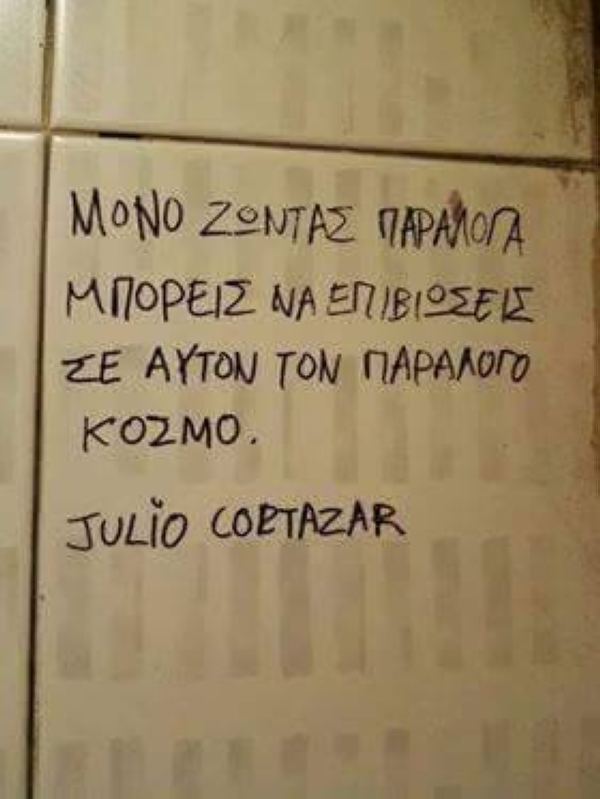 ΜΟΝΟ ΖΩΝΤΑΣ ΠΑΡΑΛΟΓΑ
ΜΠΟΡΕΙΣ ΝΑ ΕΠΙΒΙΩΣΕΙΣ
ΣΕ ΑΥΤΟΝ ΤΟΝ ΠΑΡΑΛΟΓΟ
ΚΟΣΜΟ.
JULiO CORTAZAR